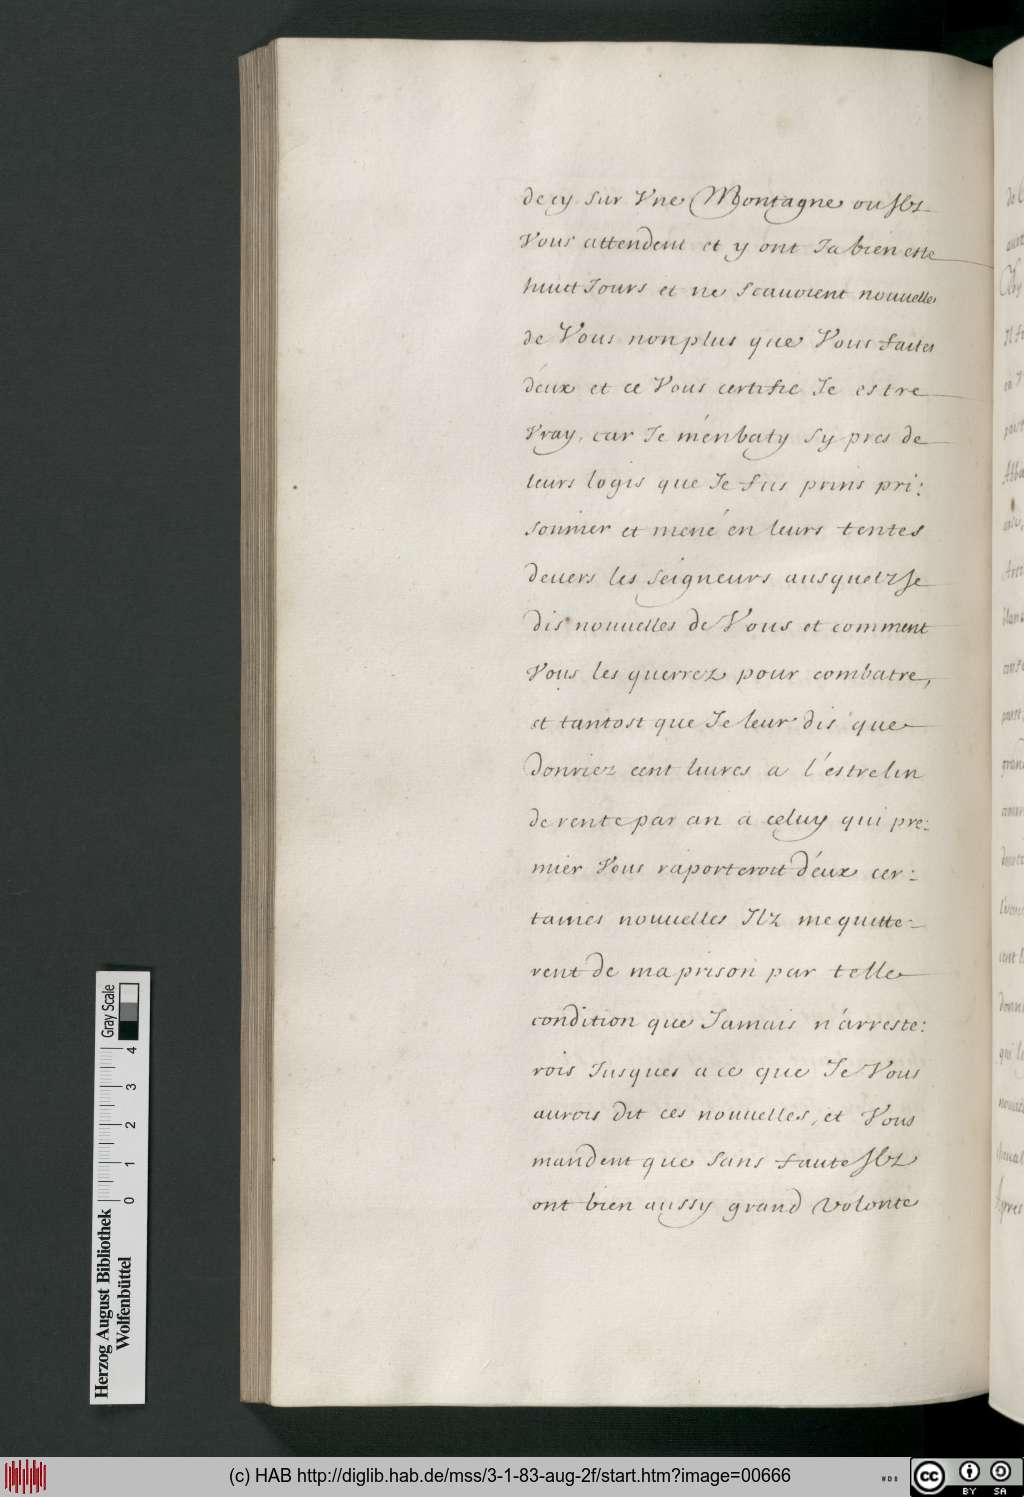 decy sur Vne Montagne ou Ilz
Vous attendent et y ont Ja bien este
huict Jours et ne scauoient nouuelles
de Vous non plus que Vous faites
déux et ce Vous certifie Je estre
Vray, car Je m'énbaty sy pres de
leurs logis que Je fus prins pri:
sonnier et mené én leurs tentes
deuers les seigneurs ausquelz Je
dis nouuelles de Vous et comment
Vous les querrez pour combatre,
et tantost que Je leur dis que
donriez cent liures a l'éstrelin
de rente par an a celuy qui pre:
mier Vous raporteroit d'éux cer:
taines nouuelles Ilz me quitte:
rent de ma prison par telle
condition que Jamais n'árreste:
rois Jusques a ce que Je Vous
aurois dit ces nouuelles, et Vous
mandent que sans faute Ilz
ont bien aussy grand volonte
Herzog August Bibliothek
Wolfenbüttel
0 1 2 3 4
Gray Scale
(c) HAB http://diglib.hab.de/mss/3-1-83-aug-2f/start.htm?image=00666
cc BY SA